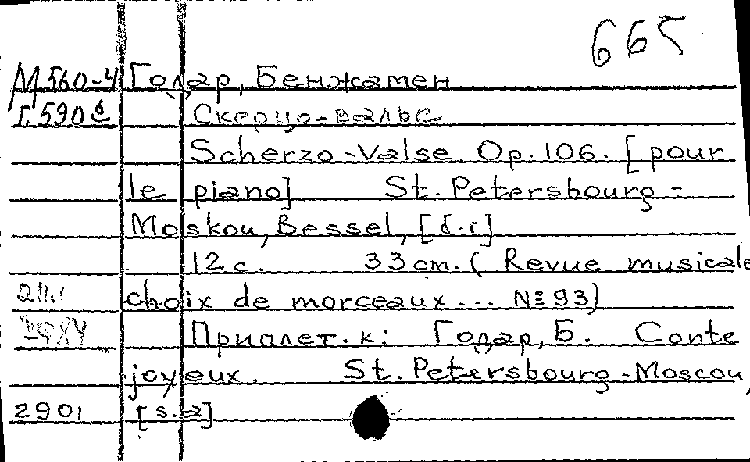 665
М560-4 Годар, Бенжамен
Г.590 Скерцо-вальс
Scherzo-Valse. Op. 106. [pour
le piano] St. Petersbourg -
Moskou, Bessel, [d. i]
12 c. 33 cm. (Revue musicale
choix de morceaux ... № 93)
Приплет. к: Годар, Б. Conte
joyeux. St. Petersbourg - Moscou,
2901 [s. a]